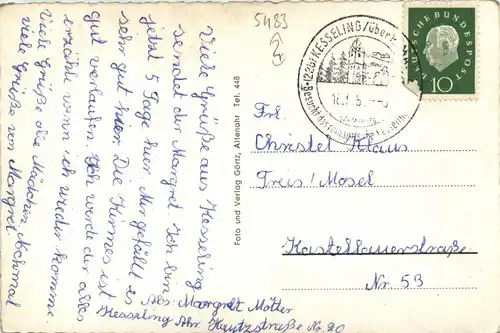 5483
Viele Grüße aus Kesseling
sendet dir Margret. Ich bin
jetzt 5 Tage hier. Mir gefällt es
sehr gut hier. Die Kirmes ist
gut verlaufen. Ich werde dir alles
erzählen wenn ich wieder komme.
Viele Grüße alle Mädchen. Nochmal
viele Grüße von Margret.
Abs. Margret Mötter
Kesseling Ahr. Hautzstraße Nr. 20
Foto und Verlag Görtz, Altenahr Tel. 448
(22b) KESSELING/über
DEUTSCHE BUNDESPOST
10
Frl.
Christel Klaus
Treis/Mosel
Kastellauerstraße
Nr. 53